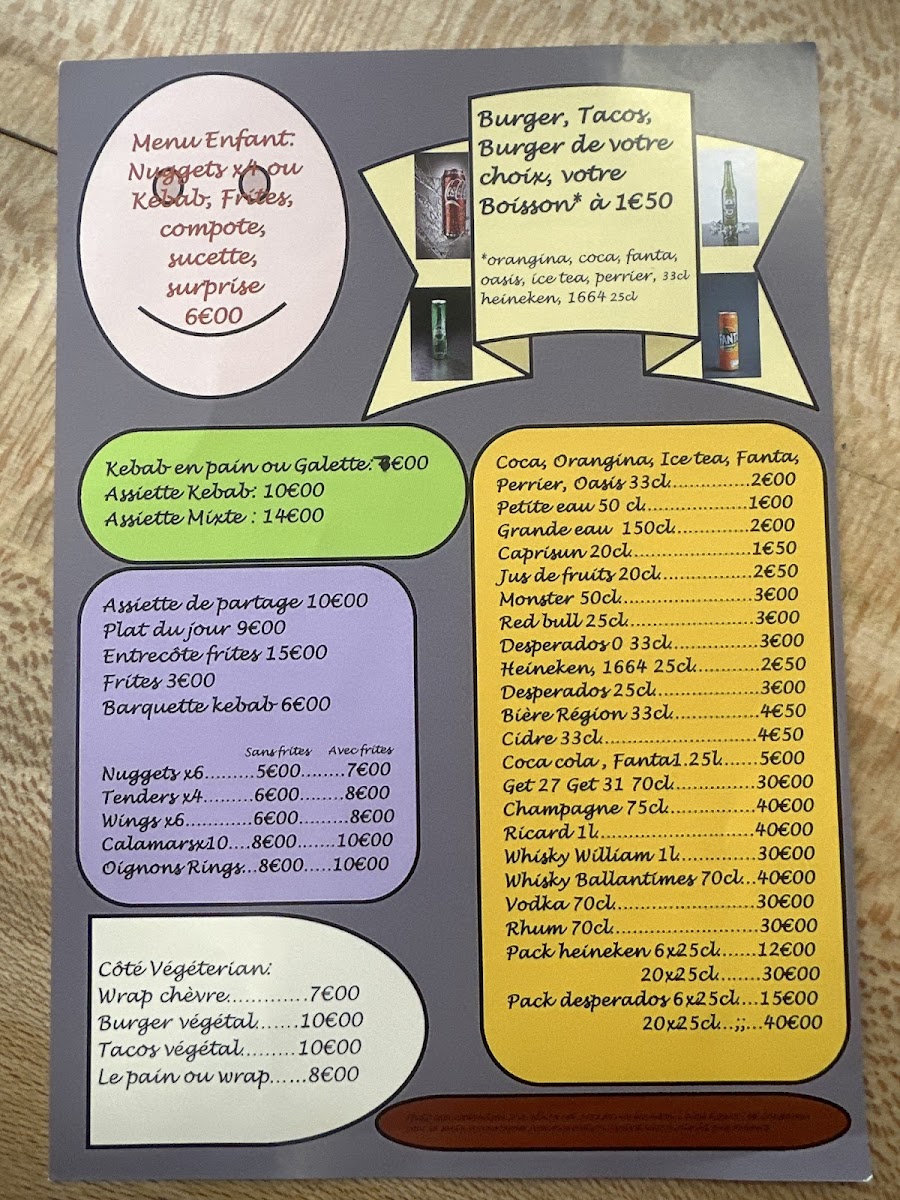 Menu Enfant:
Nuggets x4 ou
Kebab, Frites,
compote,
sucette,
surprise
6€00
Burger, Tacos,
Burger de votre
choix, votre
Boisson* à 1€50
*orangina, coca, fanta,
oasis, ice tea, perrier, 33cl
heineken, 1664 25cl
Kebab en pain ou Galette: €00
Assiette Kebab: 10€00
Assiette Mixte : 14€00
Assiette de partage 10€00
Plat du jour 9€00
Entrecôte frites 15€00
Frites 3€00
Barquette kebab 6€00
Sans frites Avec frites
Nuggets x6.........5€00........7€00
Tenders x4.........6€00........8€00
Wings x6............6€00.........8€00
Calamarsx10....8€00.......10€00
Oignons Rings...8€00.....10€00
Côté Végéterian:
Wrap chèvre.............7€00
Burger végétal.......10€00
Tacos végétal.........10€00
Le pain ou wrap......8€00
Coca, Orangina, Ice tea, Fanta,
Perrier, Oasis 33cl.............2€00
Petite eau 50 cl.................1€00
Grande eau 150cl............2€00
Caprisun 20cl...................1€50
Jus de fruits 20cl..............2€50
Monster 50cl.....................3€00
Red bull 25cl.....................3€00
Desperados 0 33cl.............3€00
Heineken, 1664 25cl..........2€50
Desperados 25cl................3€00
Bière Région 33cl.............4€50
Cidre 33cl.........................4€50
Coca cola , Fanta1.25l......5€00
Get 27 Get 31 70cl............30€00
Champagne 75cl..............40€00
Ricard 1l..........................40€00
Whisky William 1l............30€00
Whisky Ballantimes 70cl...40€00
Vodka 70cl.......................30€00
Rhum 70cl.......................30€00
Pack heineken 6x25cl......12€00
20x25cl......30€00
Pack desperados 6x25cl....15€00
20x25cl...;;...40€00